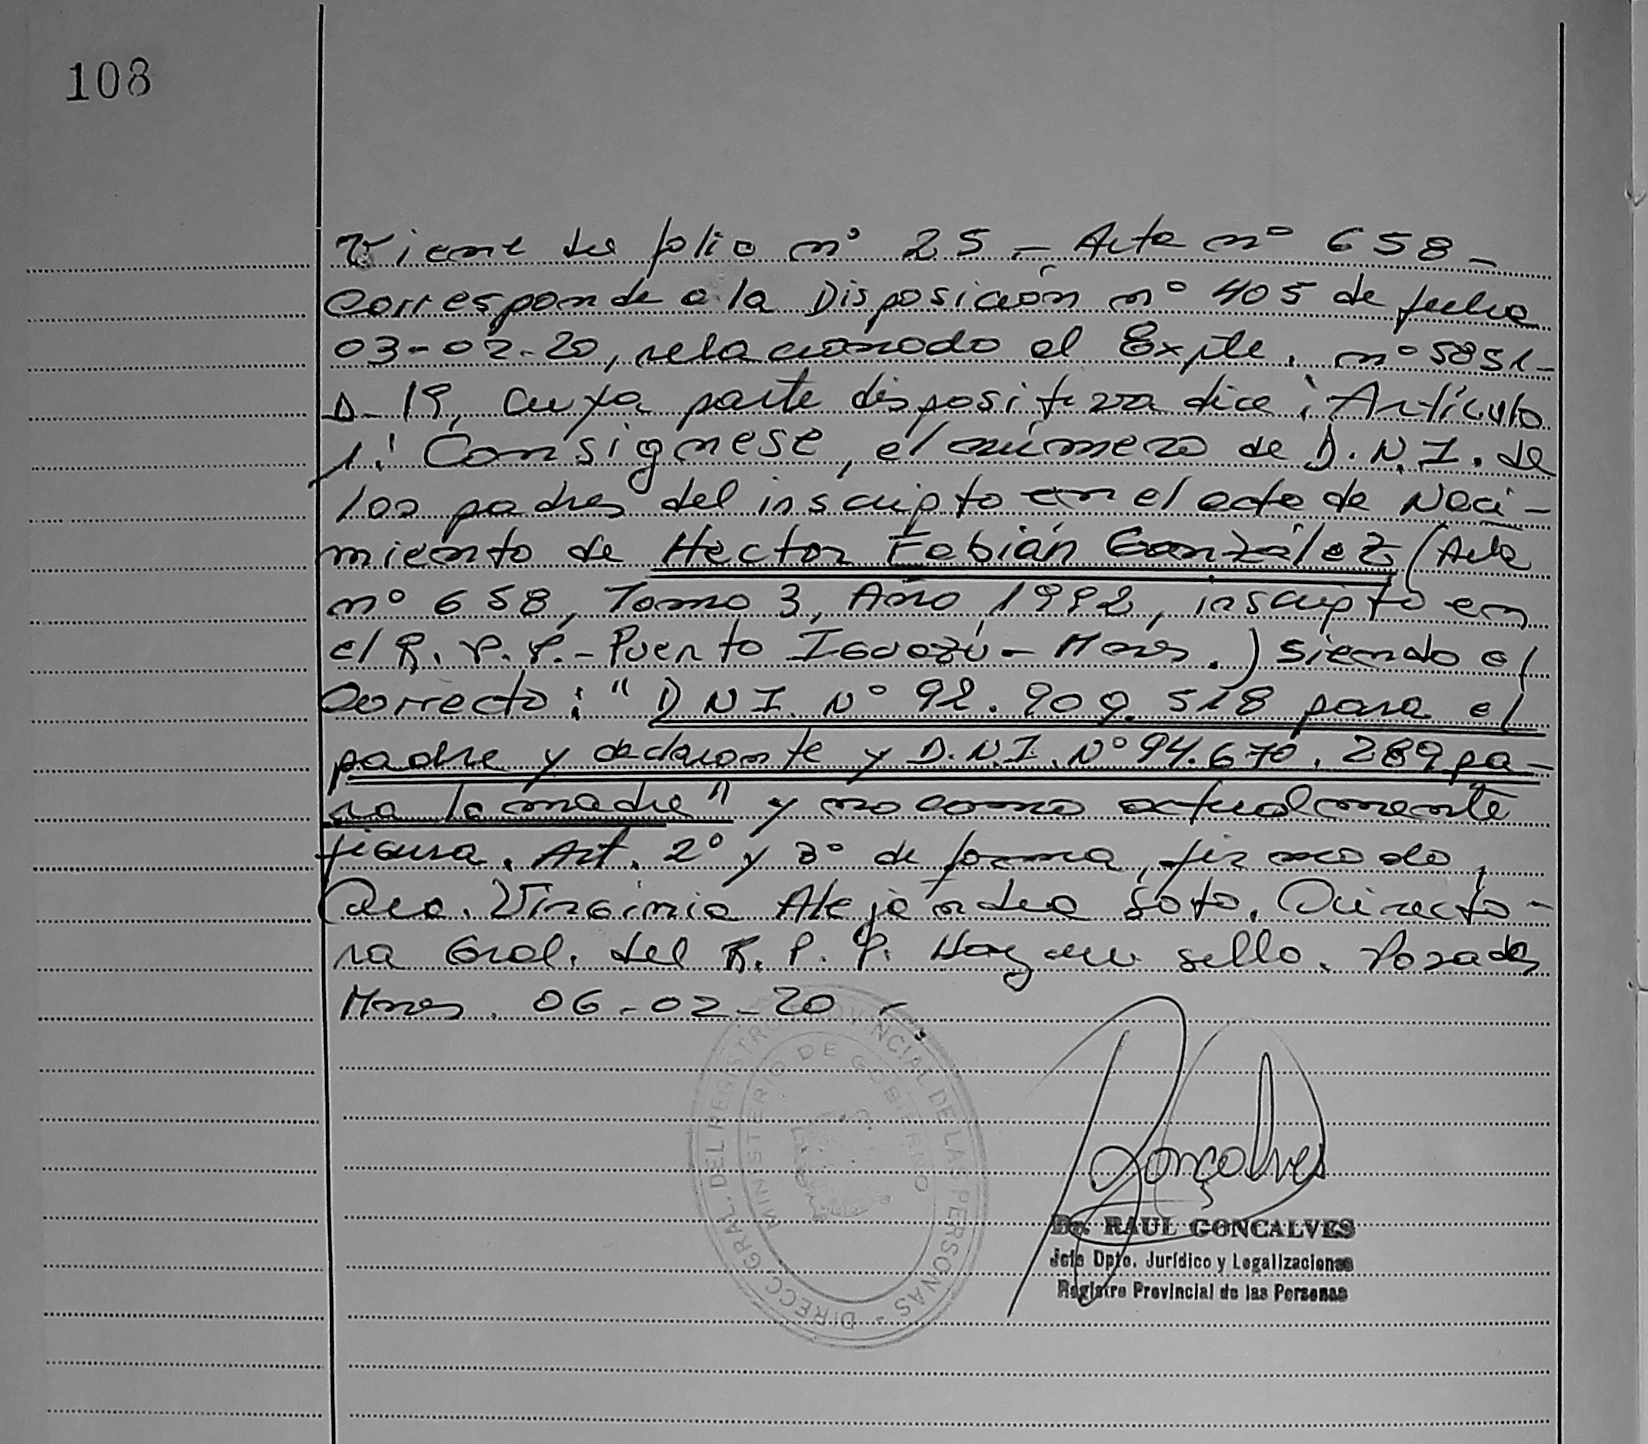 108
Viene del folio nº 25 - Acta nº 658 -
Corresponde a la Disposición nº 405 de fecha
03-02-20, relacionado al Expte. nº 5851-
D-19, cuya parte dispositiva dice: Artículo
1: Consígnese, el número de D.N.I. de
los padres del inscripto en el acta de Naci-
miento de Hector Fabián González (Acta
nº 658, Tomo 3, Año 1992, inscripto en
el R.P.P.- Puerto Iguazú - Mnes.) siendo el
correcto: "D.N.I. Nº 92.909.518 para el
padre y declarante y D.N.I. Nº 94.670.289 pa-
ra la madre" y no como actualmente
figura. Art. 2º y 3º de forma, firmado,
Virginia Alejandra Soto. Directo-
ra Gral. del R.P.P. Hay un sello. Posadas
Mnes. 06-02-20 -
DIRECC. GRAL. DEL REGISTRO PROVINCIAL DE LAS PERSONAS -
MINISTERIO DE GOBIERNO
Gonçalves
Dr. RAUL GONCALVES
Jefe Dpto. Jurídico y Legalizaciones
Registro Provincial de las Personas